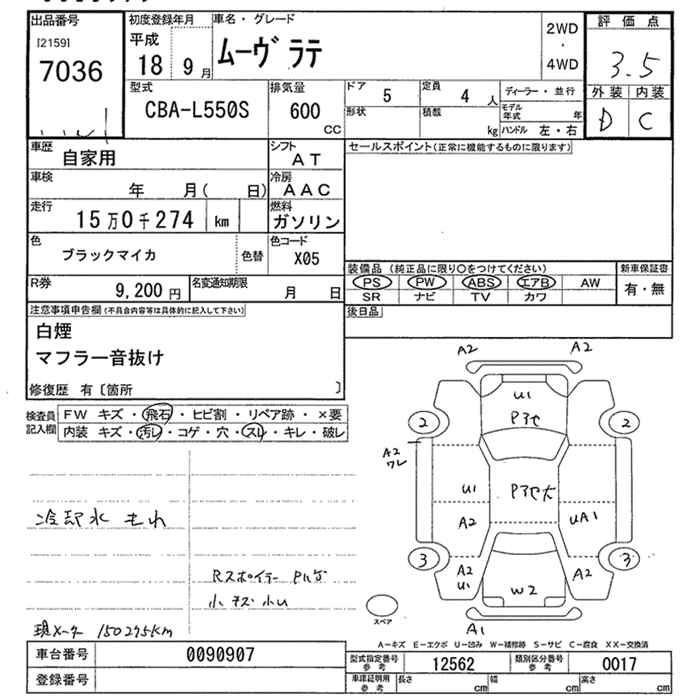 出品番号 初度登録年月 車名・グレード 2WD ・ 4WD 評価点
[2159] 7036 平成 18 9月 ムーヴ ラテ 3.5
型式 排気量 ドア 5 定員 4人 ディーラー・並行 外装 内装
CBA-L550S 600 CC 形状 積載 kg モデル年式 年 D C
ハンドル 左・右
車歴 自家用 シフト AT セールスポイント(正常に機能するものに限ります)
車検 年 月( 日) 冷房 AAC
走行 15万0千274 km 燃料 ガソリン
色 ブラックマイカ 色替 色コード X05
装備品 (純正品に限り○をつけてください) 新車保証書
R券 9,200円 名変通知期限 月 日 PS PW ABS エアB AW 有・無
SR ナビ TV カワ
注意事項申告欄(不具合内容等は具体的に記入して下さい) 後日品
白煙
マフラー音抜け
修復歴 有〔箇所 〕
検査員記入欄 FW キズ・飛石・ヒビ割・リペア跡・×要
内装 キズ・汚レ・コゲ・穴・スレ・キレ・破レ
A2 A2
U1
Pヌセ
2 2
A2
ワレ
U1 Pヌセ大
A2 UA1
3 3
A2 A2
U1 W2
スペア
A1
冷却水 もれ
Rスポイラー
小キズ 小U
現メーター 150275km
A-キズ E-エクボ U-凹み W-補修跡 S-サビ C-腐食 XX-交換済
車台番号 0090907 型式指定番号 参考 12562 類別区分番号 参考 0017
登録番号 車庫証明用 参考 長さ cm 幅 cm 高さ cm